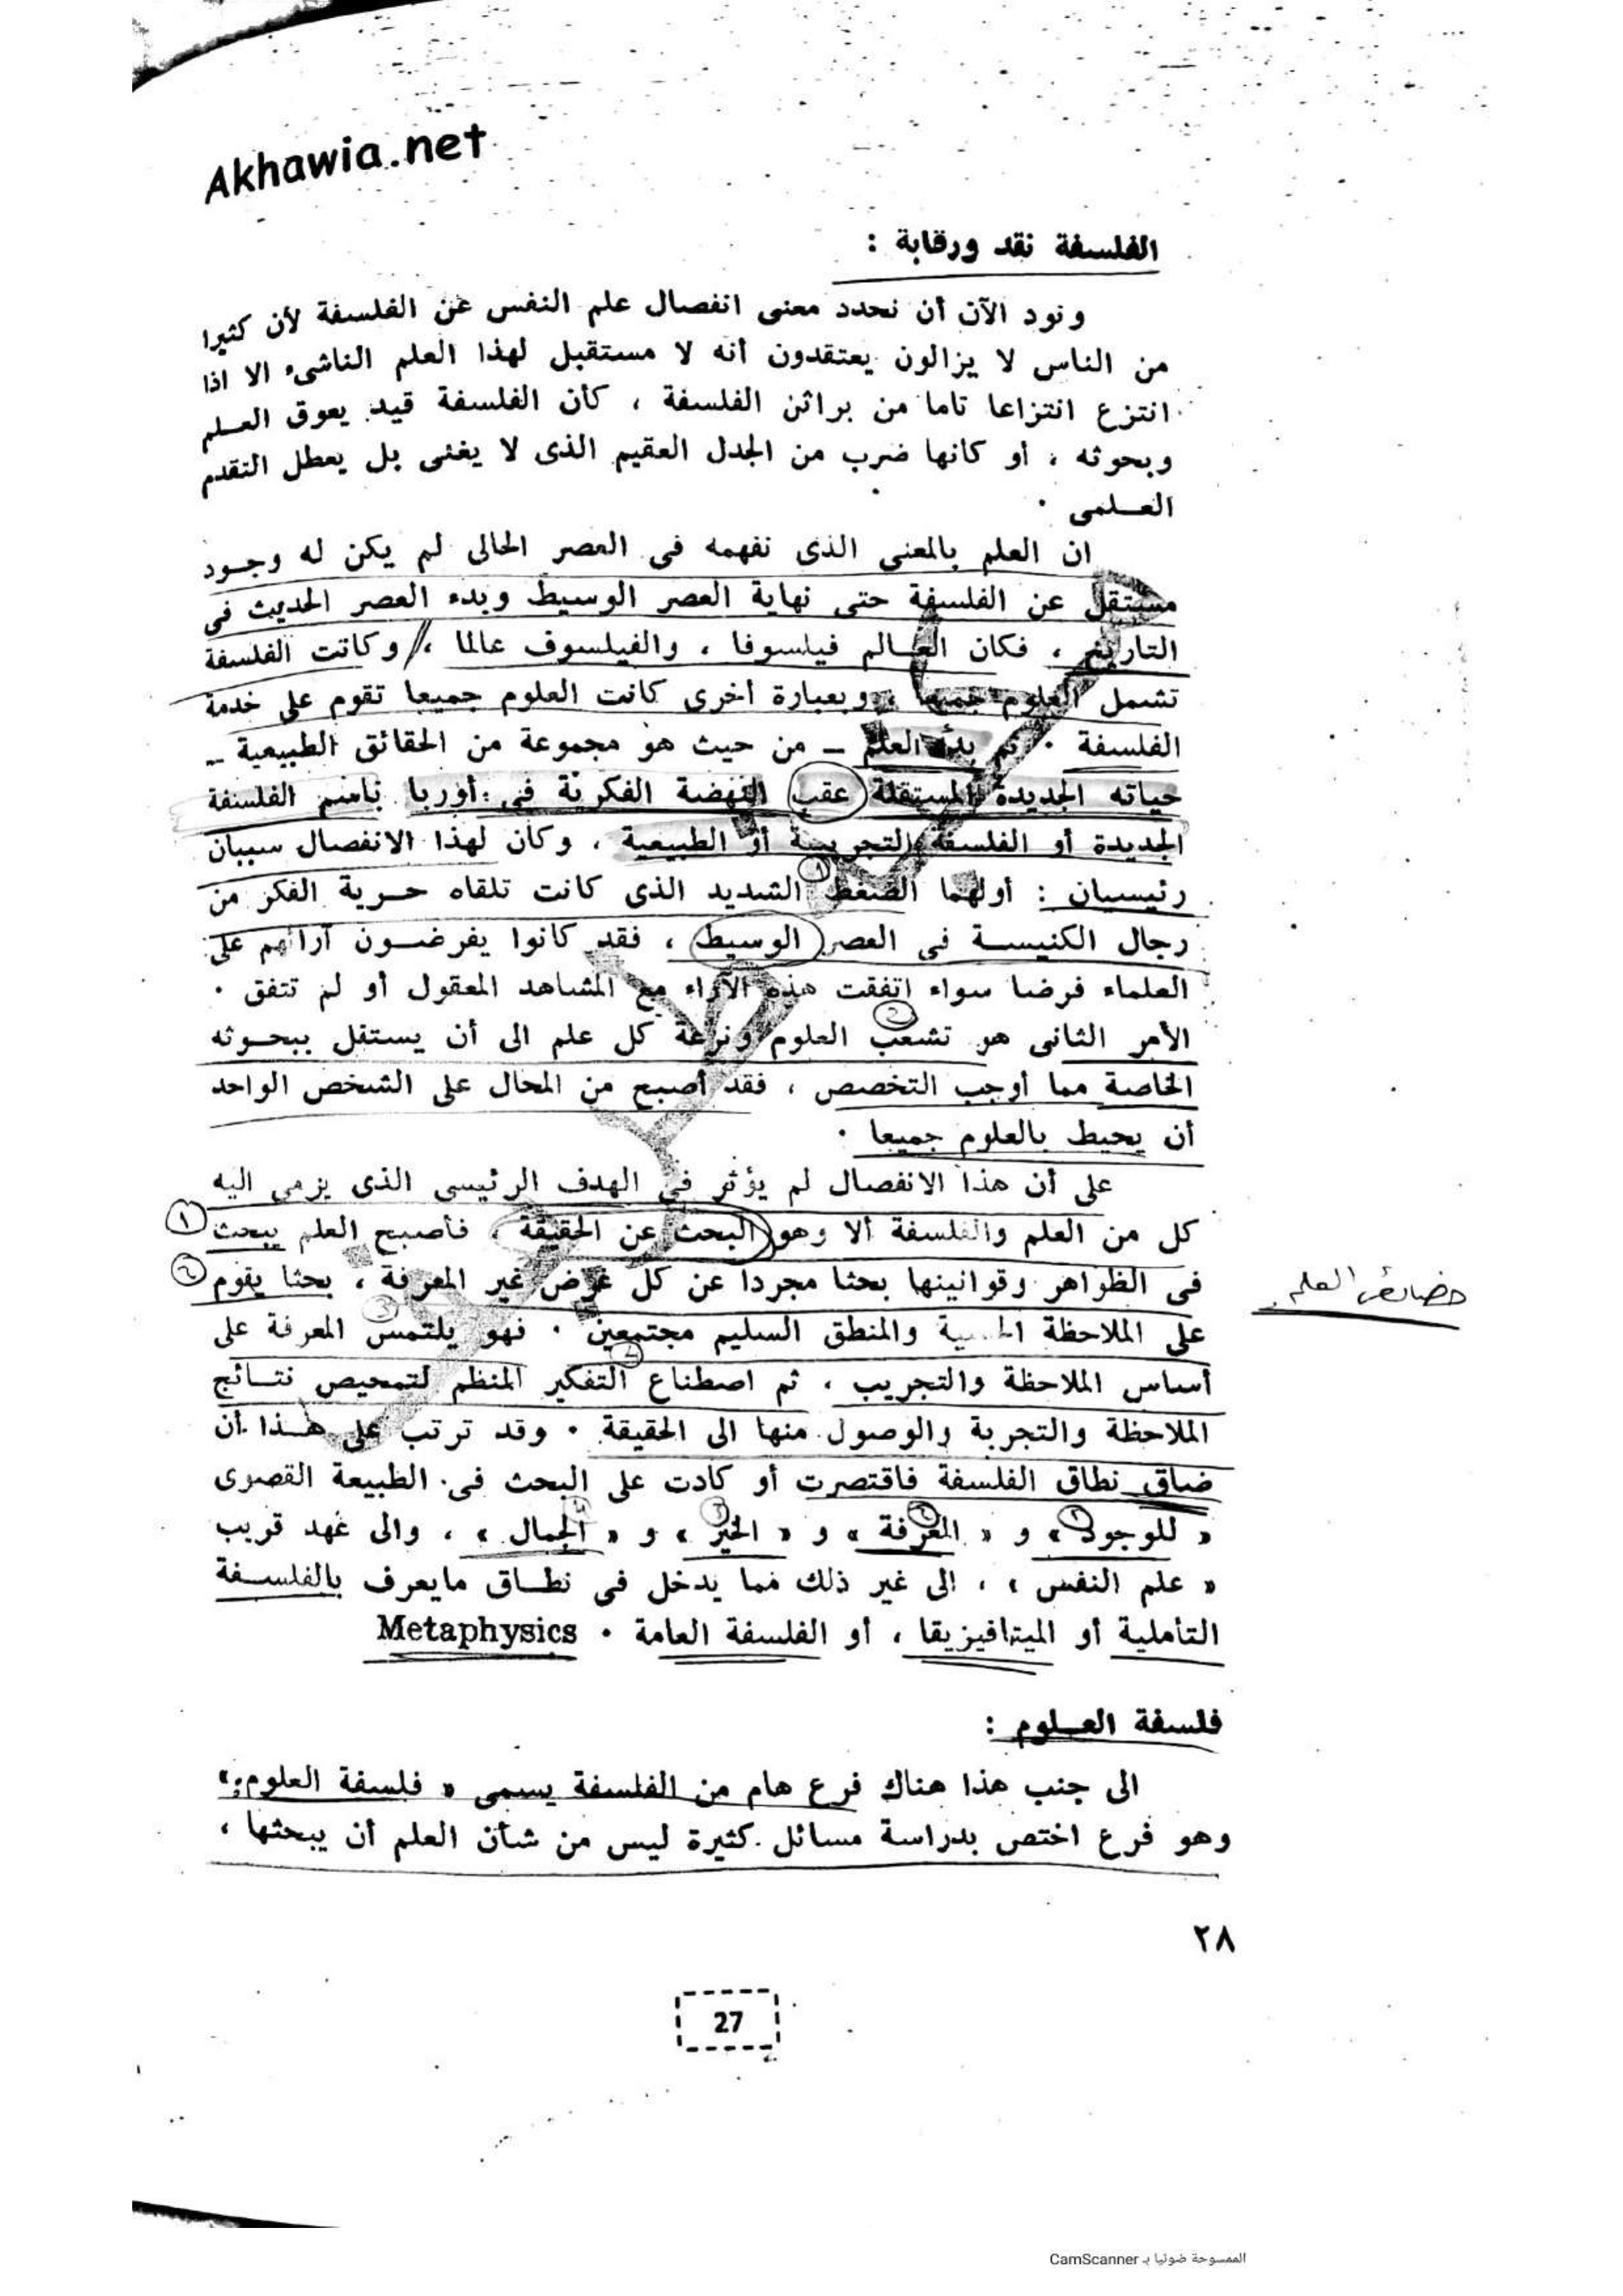 Akhawia.net
الفلسفة نقد ورقابة :
ونود الآن أن نحدد معنى انفصال علم النفس عن الفلسفة لأن كثيرا
من الناس لا يزالون يعتقدون أنه لا مستقبل لهذا العلم الناشىء الا اذا
انتزع انتزاعا تاما من براثن الفلسفة ، كأن الفلسفة قيد يعوق العلم
وبحوثه ، أو كانها ضرب من الجدل العقيم الذى لا يغنى بل يعطل التقدم
العلمى .
ان العلم بالمعنى الذى نفهمه فى العصر الحالى لم يكن له وجود
مستقل عن الفلسفة حتى نهاية العصر الوسيط وبدء العصر الحديث فى
التاريخ ، فكان العالم فيلسوفا ، والفيلسوف عالما ، // وكانت الفلسفة
تشمل العلوم جميعا ، وبعبارة أخرى كانت العلوم جميعا تقوم على خدمة
الفلسفة . ثم بدأ العلم – من حيث هو مجموعة من الحقائق الطبيعية –
حياته الجديدة المستقلة عقب النهضة الفكرية فى أوربا باسم الفلسفة
الجديدة أو الفلسفة التجريبية أو الطبيعية ، وكان لهذا الانفصال سببان
رئيسيان : أولهما الضغط ١ الشديد الذى كانت تلقاه حرية الفكر من
رجال الكنيسة فى العصر الوسيط ، فقد كانوا يفرضون آرائهم على
العلماء فرضا سواء اتفقت هذه الآراء مع المشاهد المعقول أو لم تتفق .
2
الأمر الثانى هو تشعب العلوم ونزعة كل علم الى أن يستقل ببحوثه
الخاصة مما أوجب التخصص ، فقد أصبح من المحال على الشخص الواحد
أن يحيط بالعلوم جميعا .
على أن هذا الانفصال لم يؤثر فى الهدف الرئيسى الذى يرمى اليه
كل من العلم والفلسفة ألا وهو البحث عن الحقيقة ، فأصبح العلم يبحث ١
فى الظواهر وقوانينها بحثا مجردا عن كل غرض غير المعرفة ، بحثا يقوم ٢
خصائص العلم
على الملاحظة الحسية والمنطق السليم مجتمعين . فهو يلتمس 3 المعرفة على
أساس الملاحظة والتجريب ، ثم اصطناع التفكير المنظم لتمحيص نتائج
الملاحظة والتجربة والوصول منها الى الحقيقة . وقد ترتب على هذا أن
ضاق نطاق الفلسفة فاقتصرت أو كادت على البحث فى الطبيعة القصوى
« للوجود » و « المعرفة » و « الخير » و « الجمال » ، والى عهد قريب
« علم النفس » ، الى غير ذلك مما يدخل فى نطاق مايعرف بالفلسفة
التأملية أو الميتافيزيقا ، أو الفلسفة العامة . Metaphysics
فلسفة العلوم :
الى جنب هذا هناك فرع هام من الفلسفة يسمى « فلسفة العلوم »
وهو فرع اختص بدراسة مسائل كثيرة ليس من شأن العلم أن يبحثها ،
٢٨
27
الممسوحة ضوئيا بـ CamScanner